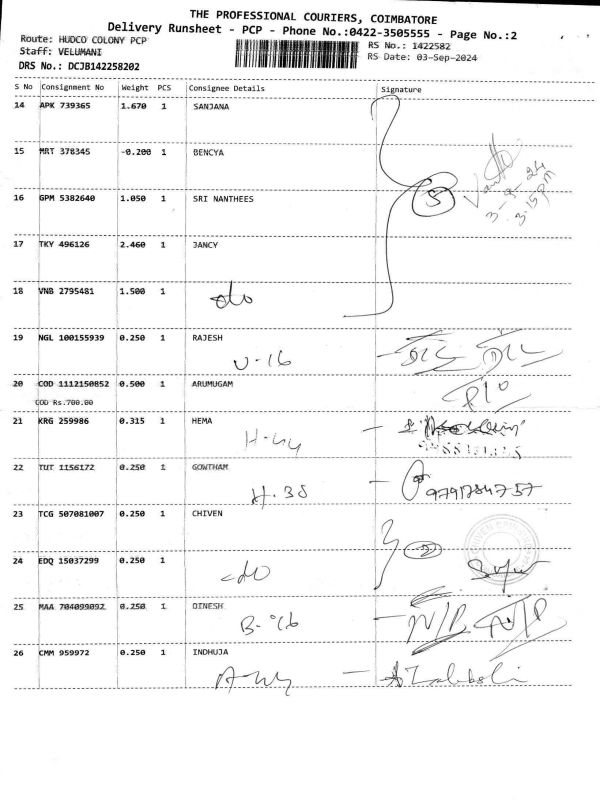 THE PROFESSIONAL COURIERS, COIMBATORE
Delivery Runsheet - PCP - Phone No.:0422-3505555 - Page No.:2
Route: HUDCO COLONY PCP
RS No.: 1422582
Staff: VELUMANI
RS Date: 03-Sep-2024
DRS No.: DCJB142258202
S No Consignment No Weight PCS Consignee Details Signature
14 APK 739365 1.670 1 SANJANA
15 MRT 378345 -0.200 1 BENCYA
3-9-24
3:15 PM
16 GPM 5382640 1.050 1 SRI NANTHEES
5
17 TKY 496126 2.460 1 JANCY
18 VNB 2795481 1.500 1
19 NGL 100155939 0.250 1 RAJESH
U-16
20 COD 1112150852 0.500 1 ARUMUGAM
COD Rs.700.00
21 KRG 259986 0.315 1 HEMA
22 TUT 1156172 0.250 1 GOWTHAM
H-38
9791784757
23 TCG 507081007 0.250 1 CHIVEN
24 EDQ 15037299 0.250 1
25 MAA 704099092 0.250 1 DINESH
N/P N/P
26 CMM 959972 0.250 1 INDHUJA